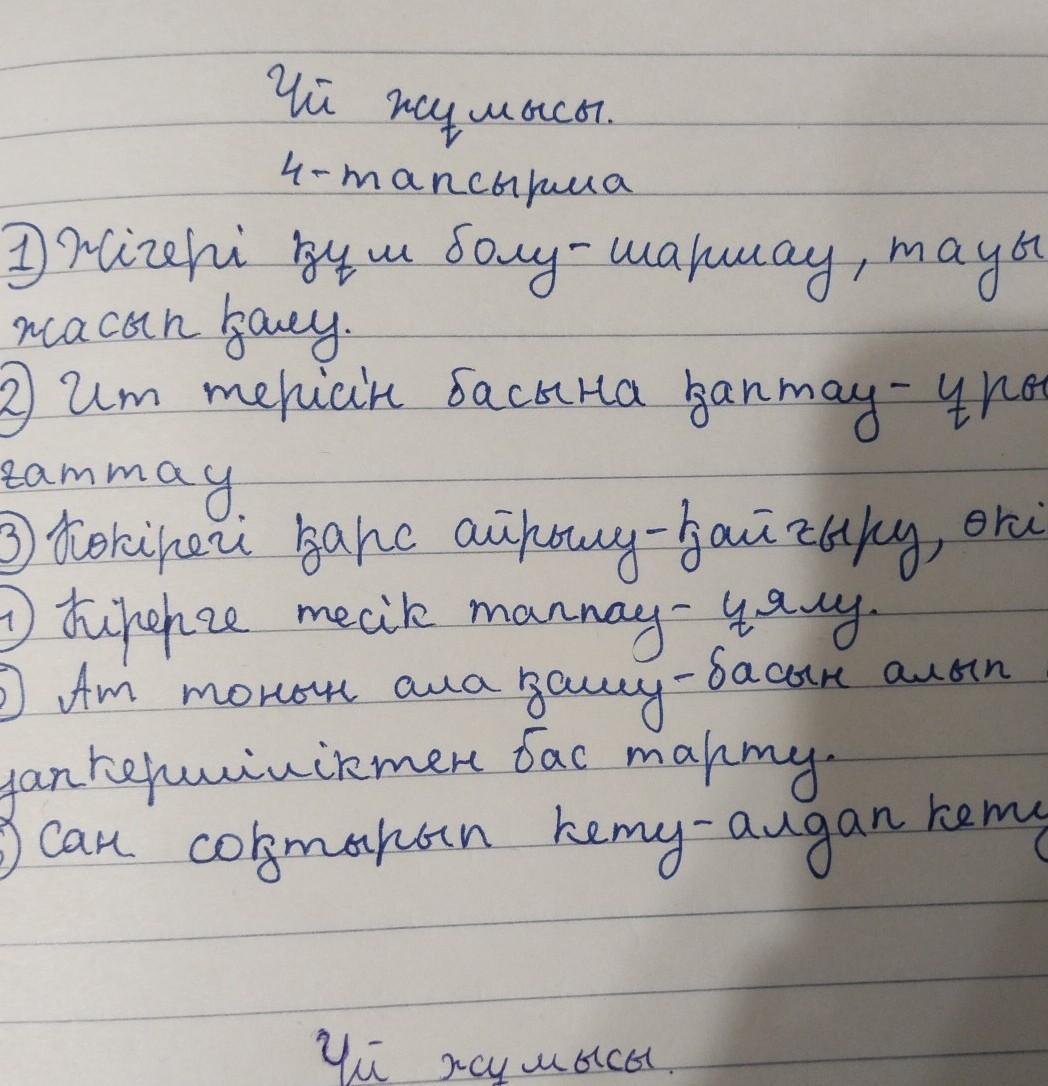 Үй жұмысы.
4-тапсырма
1) Жігері құм болу-шаршау, тауы
жасып қалу.
2) Ит терісін басына қаптау- ұры
ғаттау
3) Көкірегі қарс айрылу-қайғыру, өкі
Кірерге тесік таппау- ұялу.
Ат тонын ала қашу-басын алып
уапкершіліктен бас тарту.
Сан соқтырып кету-алдап кету
Үй жұмысы.